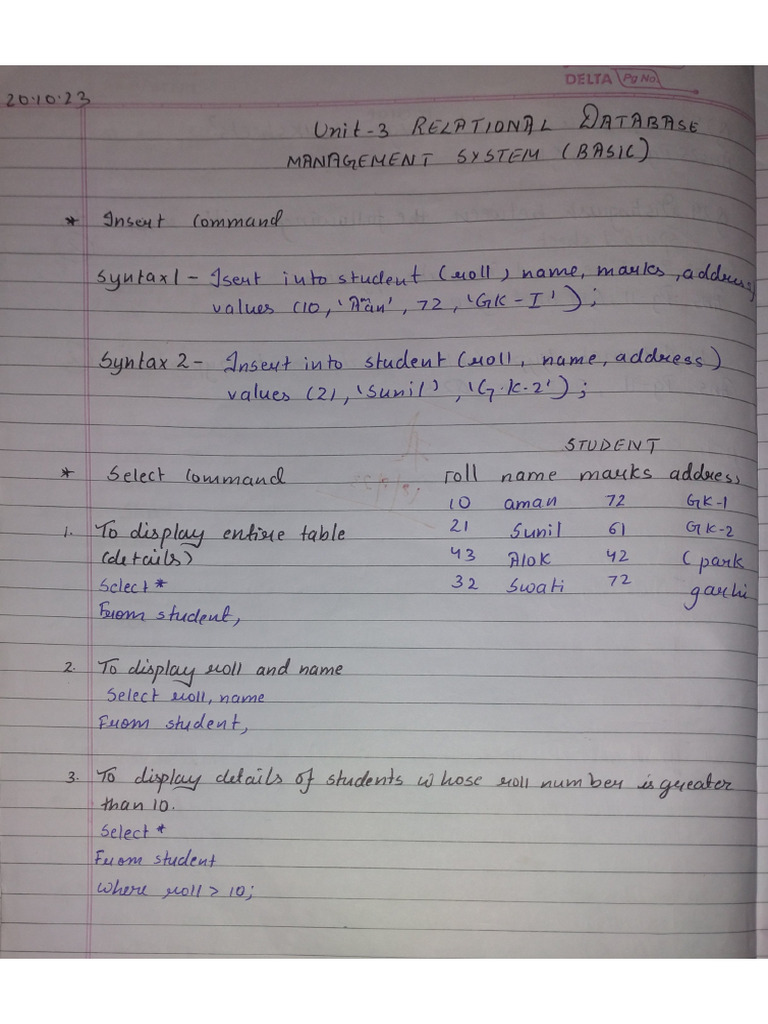 DELTA Pg No.
20.10.23
Unit-3 RELATIONAL DATABASE
MANAGEMENT SYSTEM (BASIC)
* Insert Command
Syntax 1 - Isert into student (roll, name, marks, address)
values (10, 'Aan', 72, 'GK-I');
Syntax 2 - Insert into student (roll, name, address)
values (21, 'Sunil', 'G.K-2');
STUDENT
* Select Command
roll name marks address
10 aman 72 GK-1
21 Sunil 61 GK-2
43 Alok 42 (park
32 Swati 72 garhi
1. To display entire table
(details)
Select *
From student,
2. To display roll and name
Select roll, name
From student,
3. To display details of students whose roll number is greater
than 10.
Select *
From student
Where roll > 10;